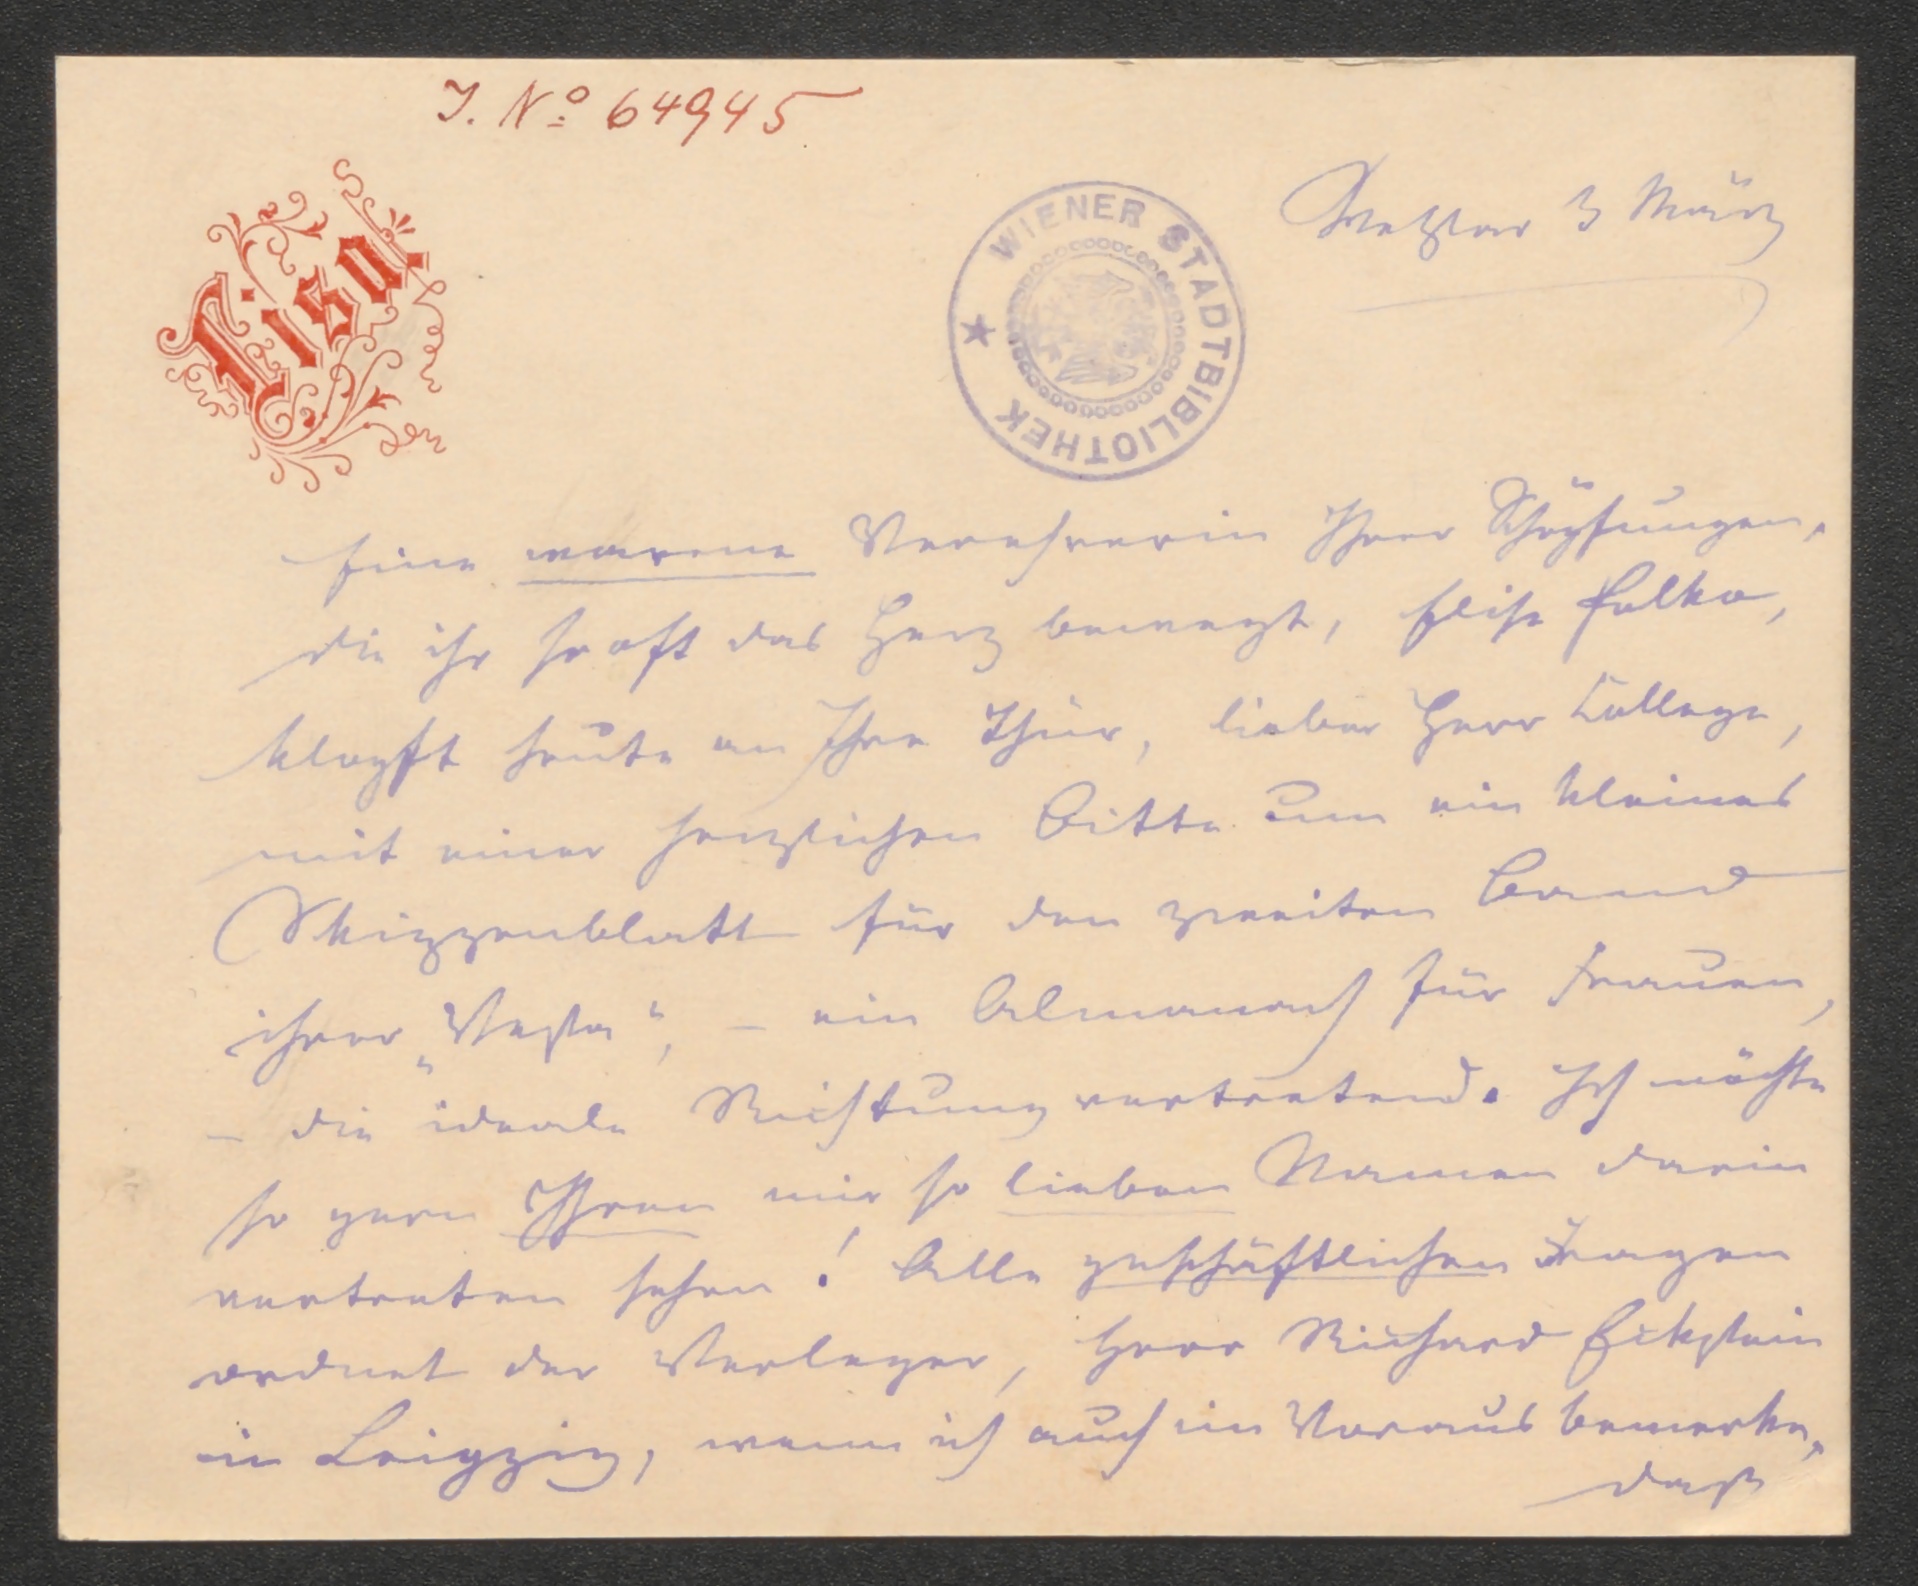 I. Nº 64945
Lisa
WIENER STADTBIBLIOTHEK
Wetzlar 3 März
Eine warme Verehrerin Ihrer Schöpfungen,
die ihr so oft das Herz bewegt, Elise Polko,
klopft heute an Ihre Thür, lieber Herr College,
mit einer herzlichen Bitte um ein kleines
Skizzenblatt für den zweiten Band
ihrer „Vesta“, – ein Almanach für Frauen,
– die ideale Richtung vertretend. Ich möchte
so gern Ihren mir so lieben Namen darin
vertreten sehen! Alle geschäftlichen Fragen
ordnet der Verleger, Herr Richard Eckstein
in Leipzig, wenn ich auch im Voraus bemerke,
daß